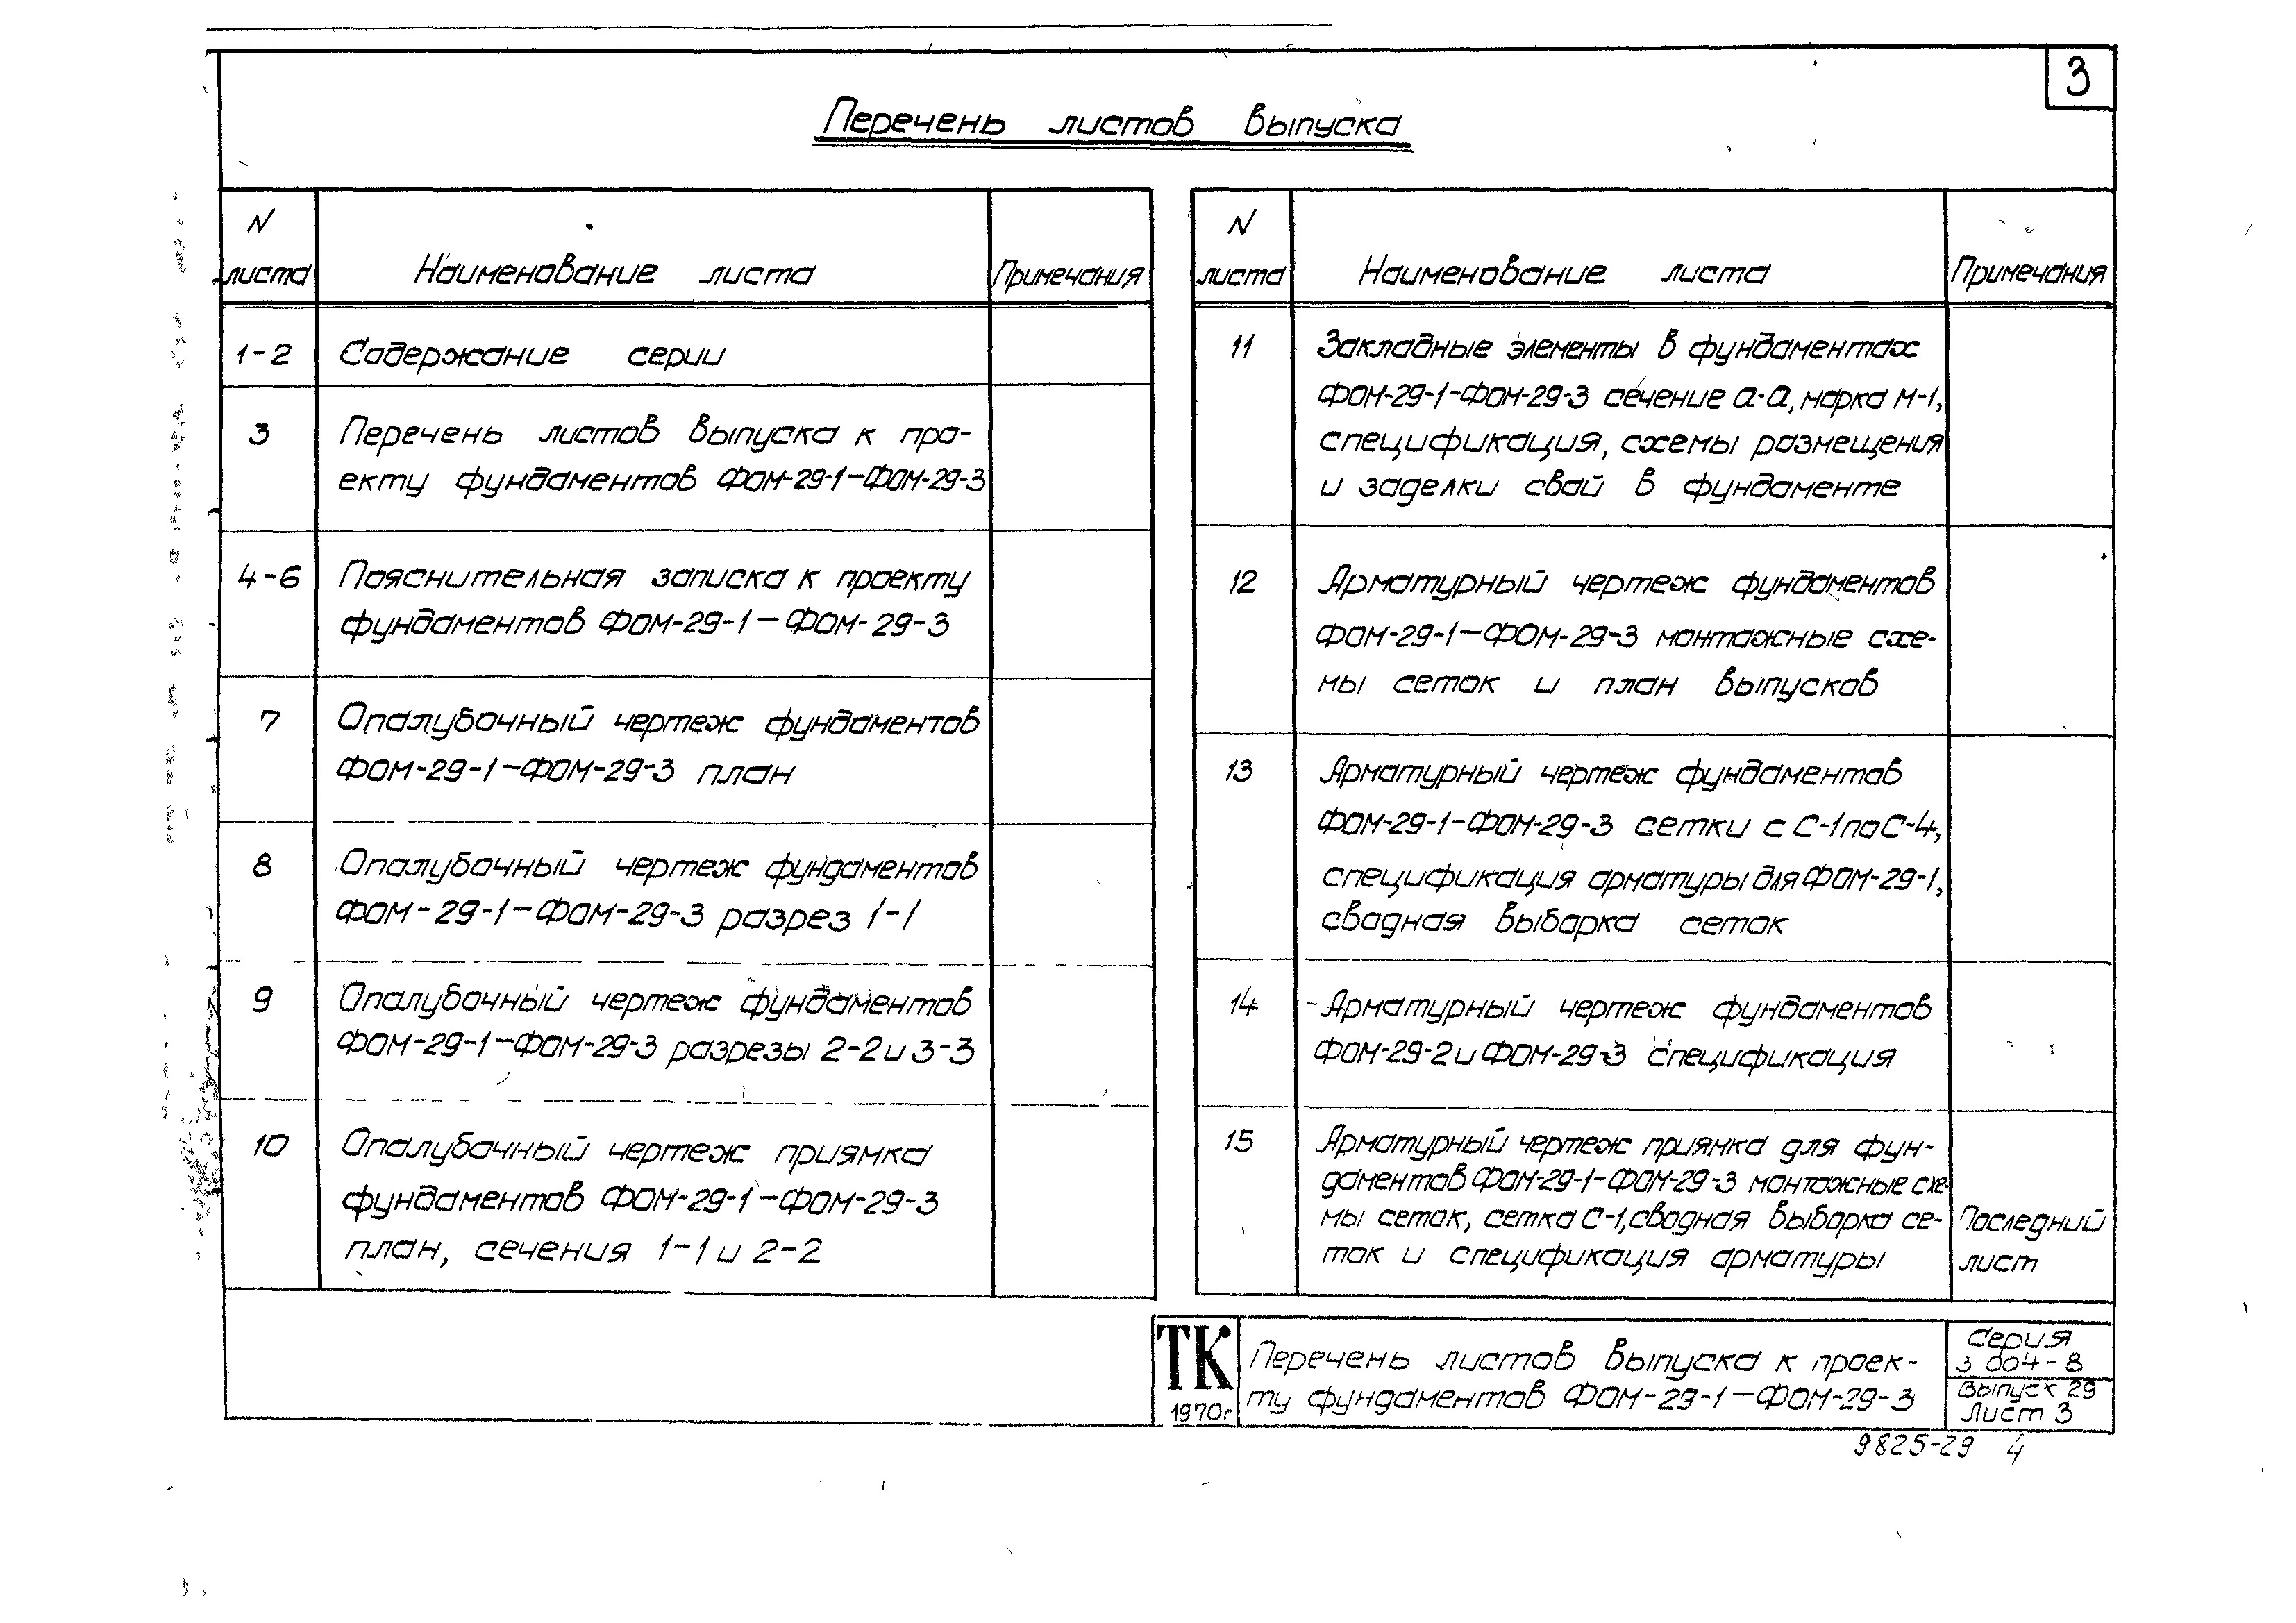 3
Перечень листов выпуска
N листа
Наименование листа
Примечания
1-2
Содержание серии
3
Перечень листов выпуска к про-
екту фундаментов ФОМ-29-1-ФОМ-29-3
4-6
Пояснительная записка к проекту
фундаментов ФОМ-29-1-ФОМ-29-3
7
Опалубочный чертеж фундаментов
ФОМ-29-1-ФОМ-29-3 план
8
Опалубочный чертеж фундаментов
ФОМ-29-1-ФОМ-29-3 разрез 1-1
9
Опалубочный чертеж фундаментов
ФОМ-29-1-ФОМ-29-3 разрезы 2-2 и 3-3
10
Опалубочный чертеж приямка
фундаментов ФОМ-29-1-ФОМ-29-3
план, сечения 1-1 и 2-2
N листа
Наименование листа
Примечания
11
Закладные элементы в фундаментах
ФОМ-29-1-ФОМ-29-3 сечение а-а, марка М-1,
спецификация, схемы размещения
и заделки свай в фундаменте
12
Арматурный чертеж фундаментов
ФОМ-29-1-ФОМ-29-3 монтажные схе-
мы сеток и план выпусков
13
Арматурный чертеж фундаментов
ФОМ-29-1-ФОМ-29-3 сетки с С-1 по С-4,
спецификация арматуры для ФОМ-29-1,
сводная выборка сеток
14
Арматурный чертеж фундаментов
ФОМ-29-2 и ФОМ-29-3 спецификация
15
Арматурный чертеж приямка для фун-
даментов ФОМ-29-1-ФОМ-29-3 монтажные схе-
мы сеток, сетка С-1, сводная выборка се-
ток и спецификация арматуры
Последний
лист
ТК
1970г
Перечень листов выпуска к проек-
ту фундаментов ФОМ-29-1-ФОМ-29-3
Серия
3 004-8
Выпуск 29
Лист 3
9825-29 4